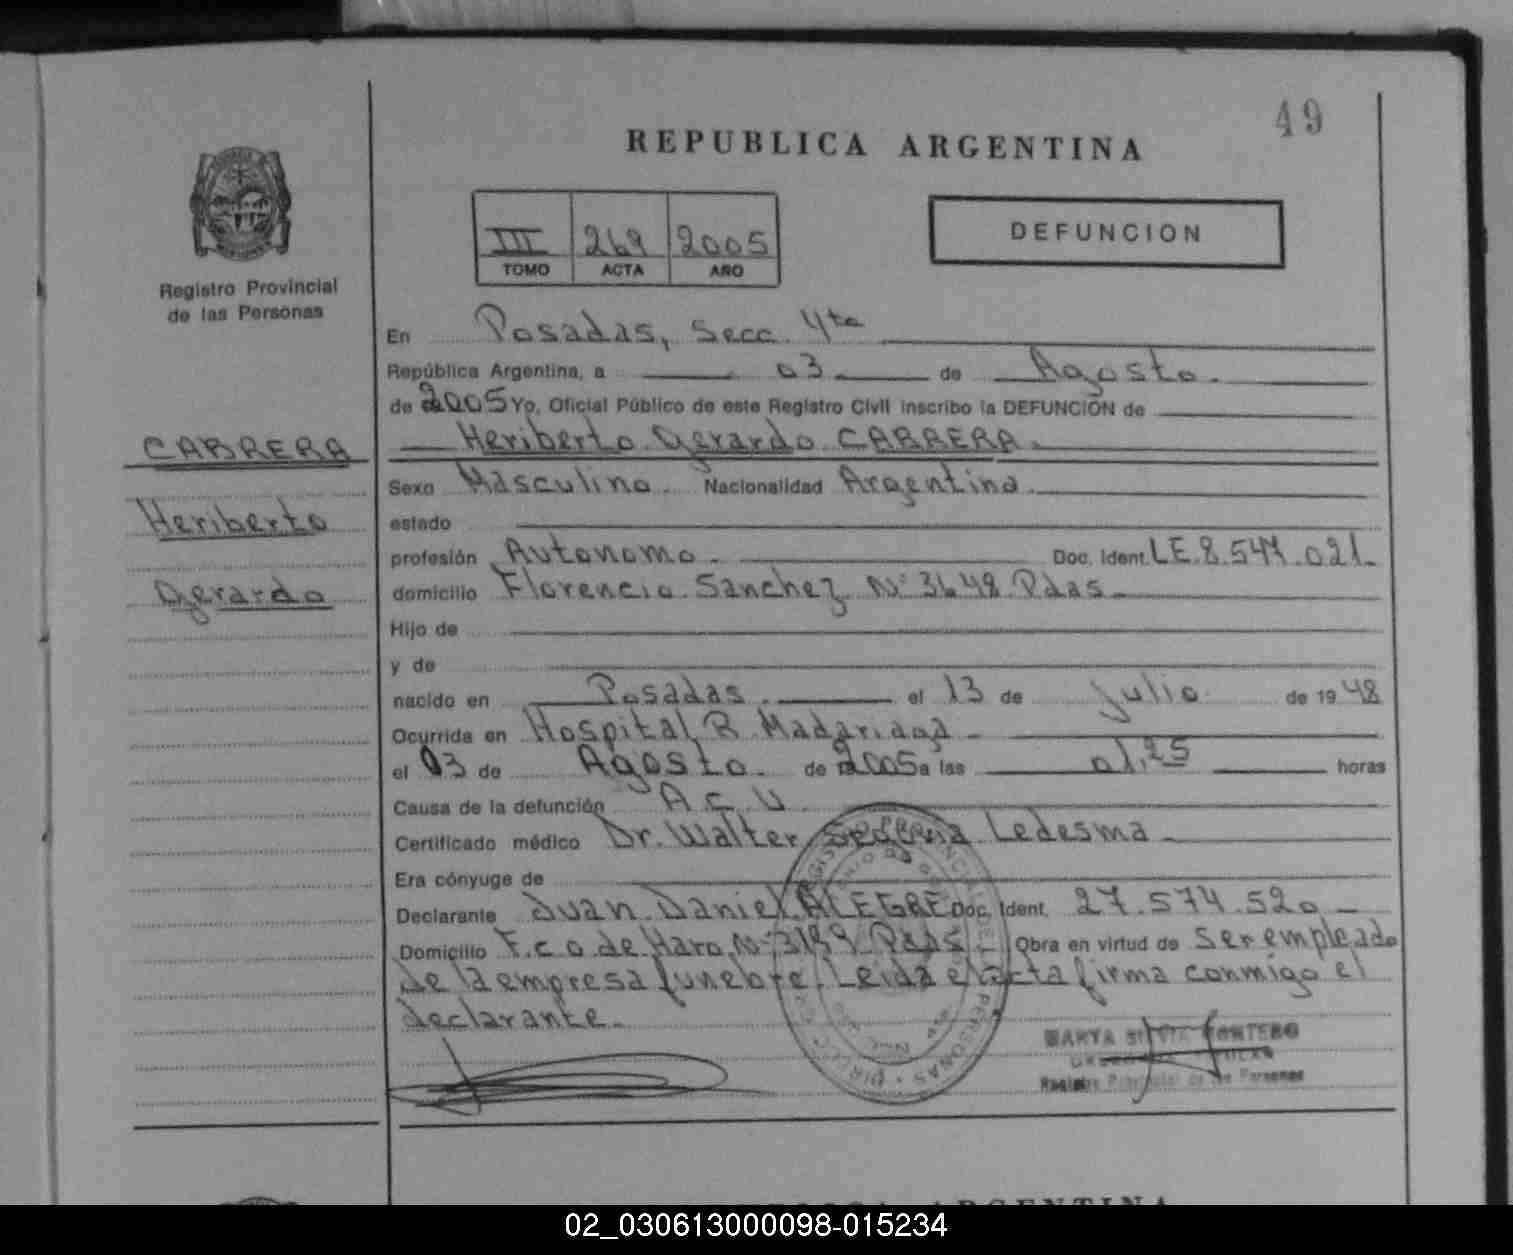 49
REPUBLICA ARGENTINA
III 269 2005
TOMO ACTA AÑO
DEFUNCION
Registro Provincial
de las Personas
En Posadas, Secc. 4ta
República Argentina, a 03 de Agosto.
de 2005 Yo, Oficial Público de este Registro Civil inscribo la DEFUNCION de
CABRERA
Heriberto Gerardo CABRERA.
Sexo Masculino. Nacionalidad Argentino.
Heriberto
estado
profesión Autonomo. Doc. Ident. LE.8.547.021.
Gerardo
domicilio Florencio Sanchez Nº 3648 Pdas
Hijo de
y de
nacido en Posadas. el 13 de Julio de 1948
Ocurrida en Hospital R. Madariaga
el 03 de Agosto de 2005 a las 01,25 horas
Causa de la defunción A C V
Certificado médico Dr. Walter Ledesma
Era cónyuge de
Declarante Juan Daniel ALEGRE Doc. Ident. 27.574.520
Domicilio F.c o. de Haro Nº 3199 Pdas Obra en virtud de ser empleado
de la empresa funebre. Leida el acta firma conmigo el
declarante.
MARTA SILVIA MONTERO
Registro Provincial de las Personas
REPUBLICA ARGENTINA
02_030613000098-015234